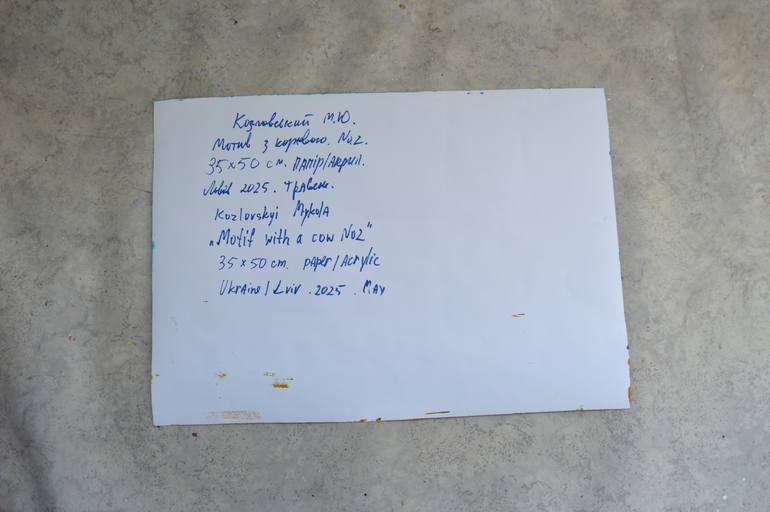 Козловський М.Ю.
Мотив з коровою. No2.
35x50 см. папір/Акрил.
Львів 2025. травень.
Kozlovskyi Mykola
„Motif with a cow No2"
35x50 cm. paper/Acrylic
Ukraine/Lviv. 2025. May